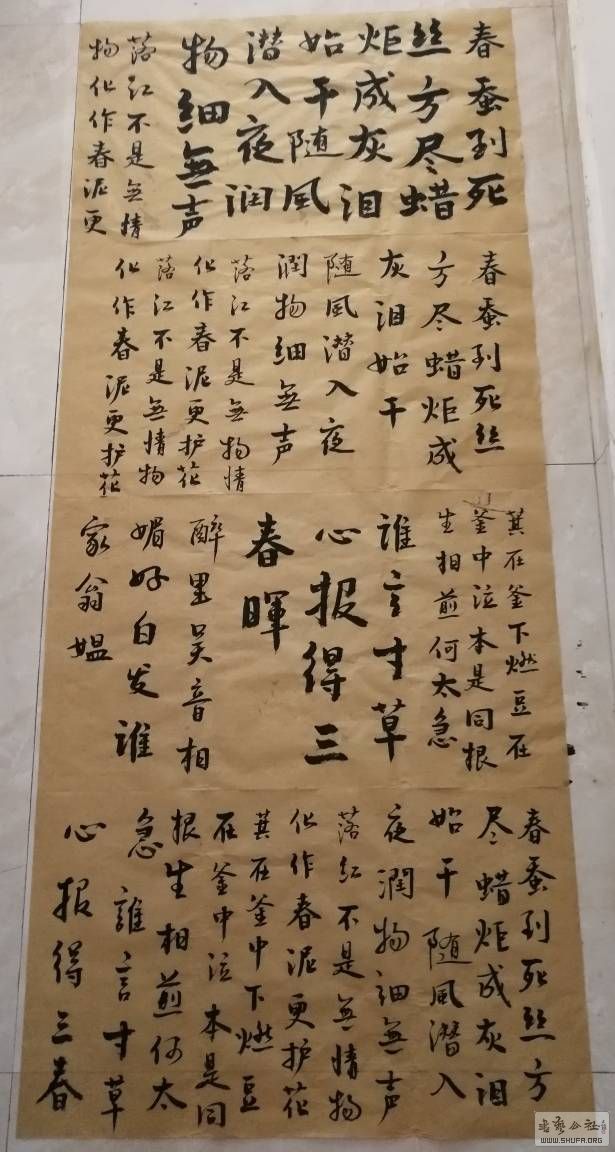 春蚕到死
丝方尽蜡
炬成灰泪
始干随风
潜入夜润
物细無声
落红不是無情
物化作春泥更
春蚕到死丝
方尽蜡炬成
灰泪始干
随风潜入夜
潤物细無声
落江不是無物情
化作春泥更护花
落江不是無情物
化作春泥更护花
萁在釜下燃豆在
釜中泣本是同根
生相煎何太急
誰言寸草
心报得三
春暉
醉里吴音相
媚好白发誰
家翁媪
春蚕到死丝方
尽蜡炬成灰泪
始干随风潜入
夜潤物细無声
落红不是無情物
化作春泥更护花
萁在釜中下燃豆
在釜中泣本是同
根生相煎何太
急誰言寸草
心报得三春
书艺公社
WWW.SHUFA.ORG